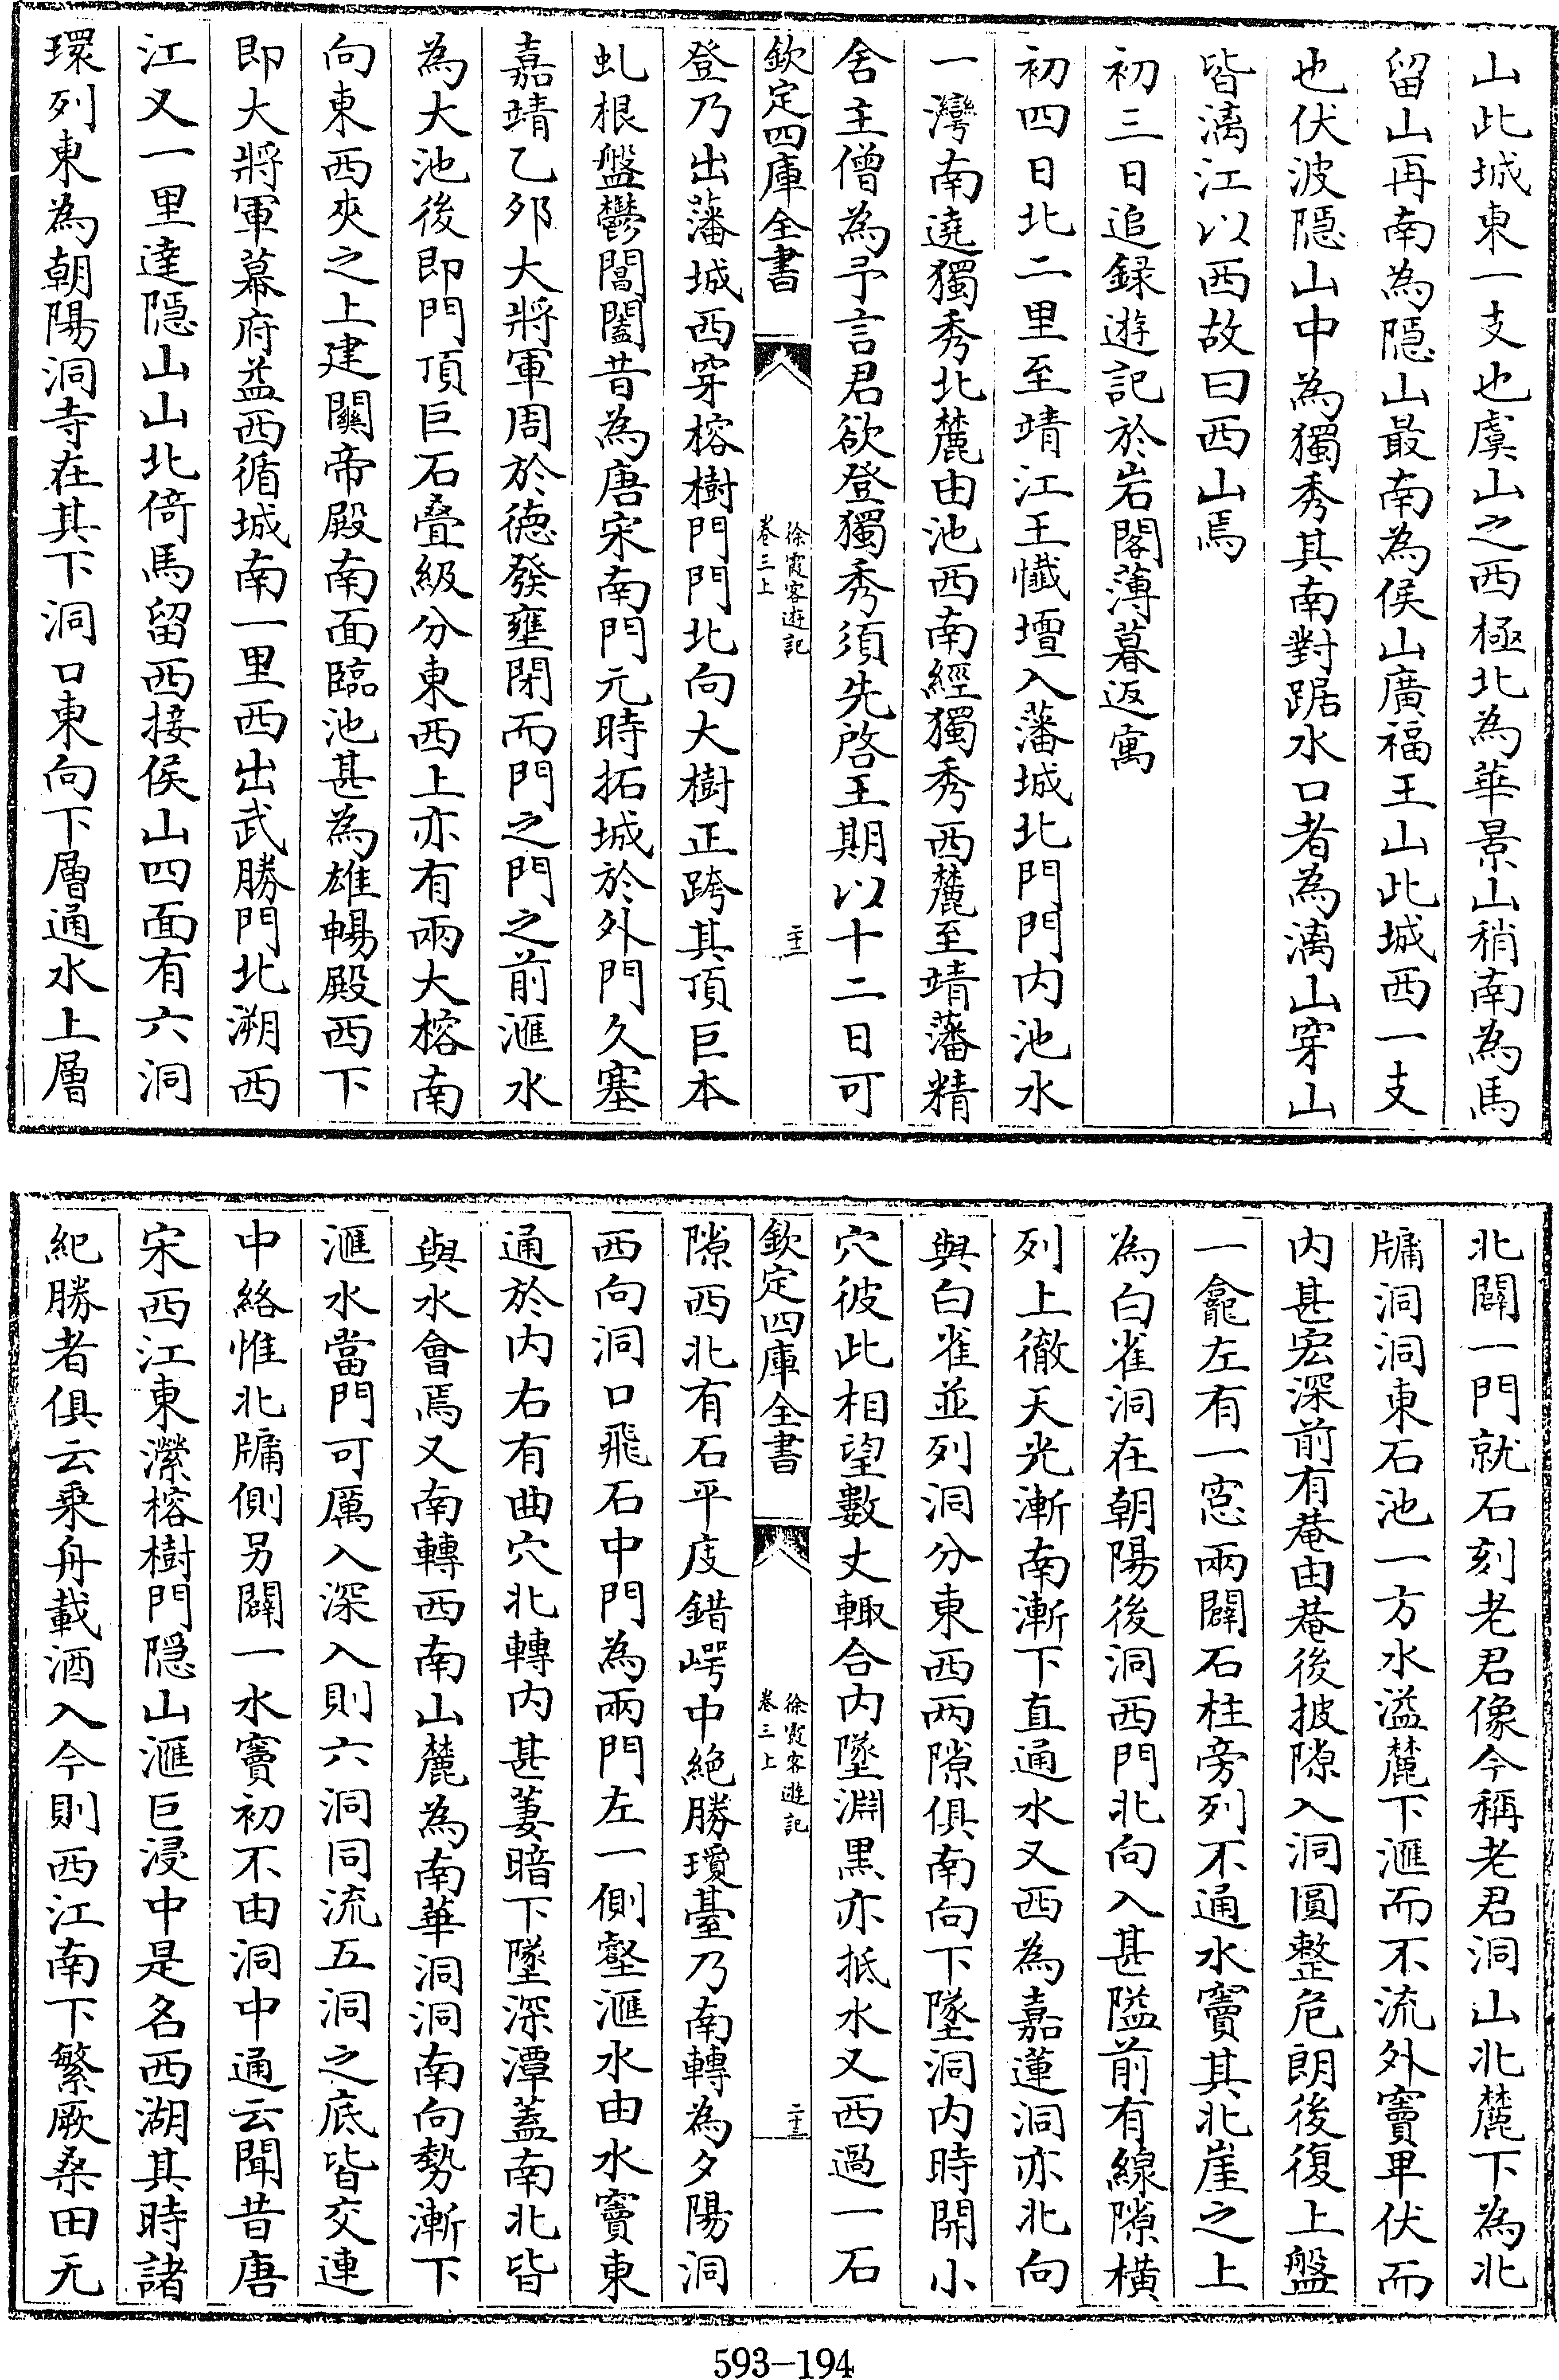 山此城東一支也虞山之西極北為華景山稍南為馬
留山再南為隱山最南為侯山廣福王山此城西一支
也伏波隱山中為獨秀其南對踞水口者為漓山穿山
皆漓江以西故曰西山焉
初三日追録遊記於岩閣薄暮返寓
初四日北二里至靖江王懺壇入藩城北門門内池水
一灣南遶獨秀北麓由池西南經獨秀西麓至靖藩精
舍主僧為予言君欲登獨秀須先啓王期以十二日可
欽定四庫全書
徐霞客遊記
卷三上
二十二
登乃出藩城西穿榕樹門門北向大樹正跨其頂巨本
虬根盤鬱閶闔昔為唐宋南門元時拓城於外門久塞
嘉靖乙夘大將軍周於徳發壅閉而門之門之前滙水
為大池後即門頂巨石疊級分東西上亦有兩大榕南
向東西夾之上建關帝殿南面臨池甚為雄暢殿西下
即大將軍幕府葢西循城南一里西出武勝門北溯西
江又一里達隱山山北倚馬留西接侯山四面有六洞
環列東為朝陽洞寺在其下洞口東向下層通水上層
北闢一門就石刻老君像今稱老君洞山北麓下為北
牗洞洞東石池一方水溢麓下滙而不流外竇卑伏而
内甚宏深前有菴由菴後披隙入洞圓整危朗後復上盤
一龕左有一窓兩闢石柱旁列不通水竇其北崖之上
為白雀洞在朝陽後洞西門北向入甚隘前有線隙橫
列上徹天光漸南漸下直通水又西為嘉蓮洞亦北向
與白雀並列洞分東西兩隙俱南向下墜洞内時開小
穴彼此相望數丈輙合内墜淵黒亦抵水又西過一石
欽定四庫全書
徐霞客遊記
卷三上
二十三
隙西北有石平庋錯崿中絶勝瓊臺乃南轉為夕陽洞
西向洞口飛石中門為兩門左一側壑滙水由水竇東
通於内右有曲穴北轉内甚蔞暗下墜深潭蓋南北皆
與水會焉又南轉西南山麓為南華洞洞南向勢漸下
滙水當門可厲入深入則六洞同流五洞之底皆交連
中絡惟北牗側另闢一水竇初不由洞中通云聞昔唐
宋西江東濚榕樹門隱山滙巨浸中是名西湖其時諸
紀勝者俱云乘舟載酒入今則西江南下繁厥桑田无
593-194